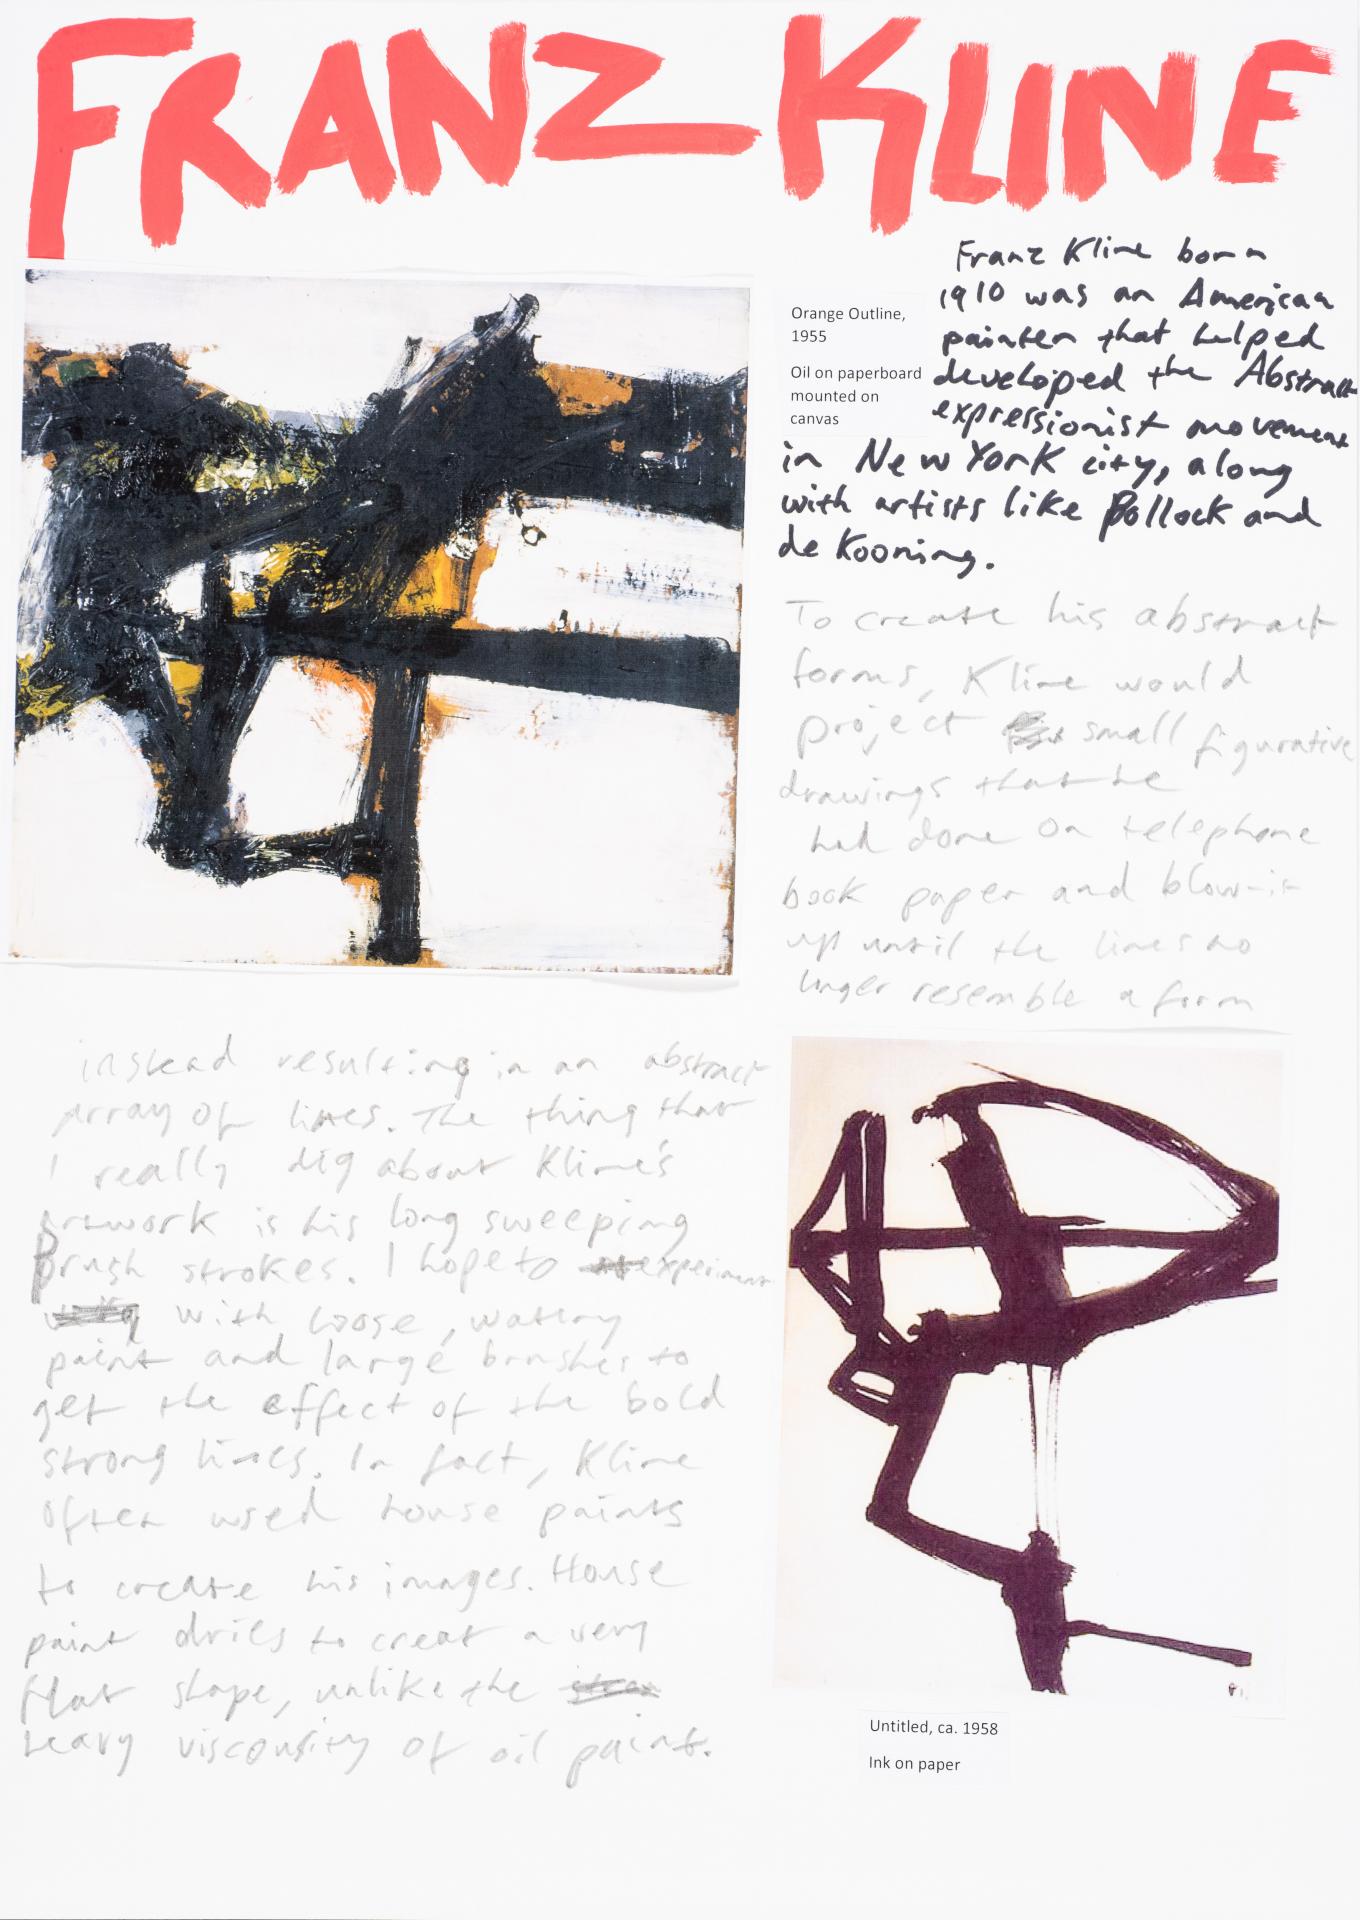 FRANZ KLINE
Orange Outline,
1955
Oil on paperboard
mounted on
canvas
Franz Kline born
1910 was an American
painter that helped
developed the Abstract
expressionist movement
in New York city, along
with artists like Pollock and
de Kooning.
To create his abstract
forms, Kline would
project small figurative
drawings that he
had done on telephone
book paper and blow it
up until the lines no
longer resemble a form
instead resulting in an abstract
array of lines. The thing that
I really dig about Kline's
artwork is his long sweeping
brush strokes. I hope to experiment
with loose, watery
paint and large brushes to
get the effect of the bold
strong lines. In fact, Kline
often used house paints
to create his images. House
paint dries to creat a very
flat shape, unlike the
heavy viscousity of oil paint.
Untitled, ca. 1958
Ink on paper